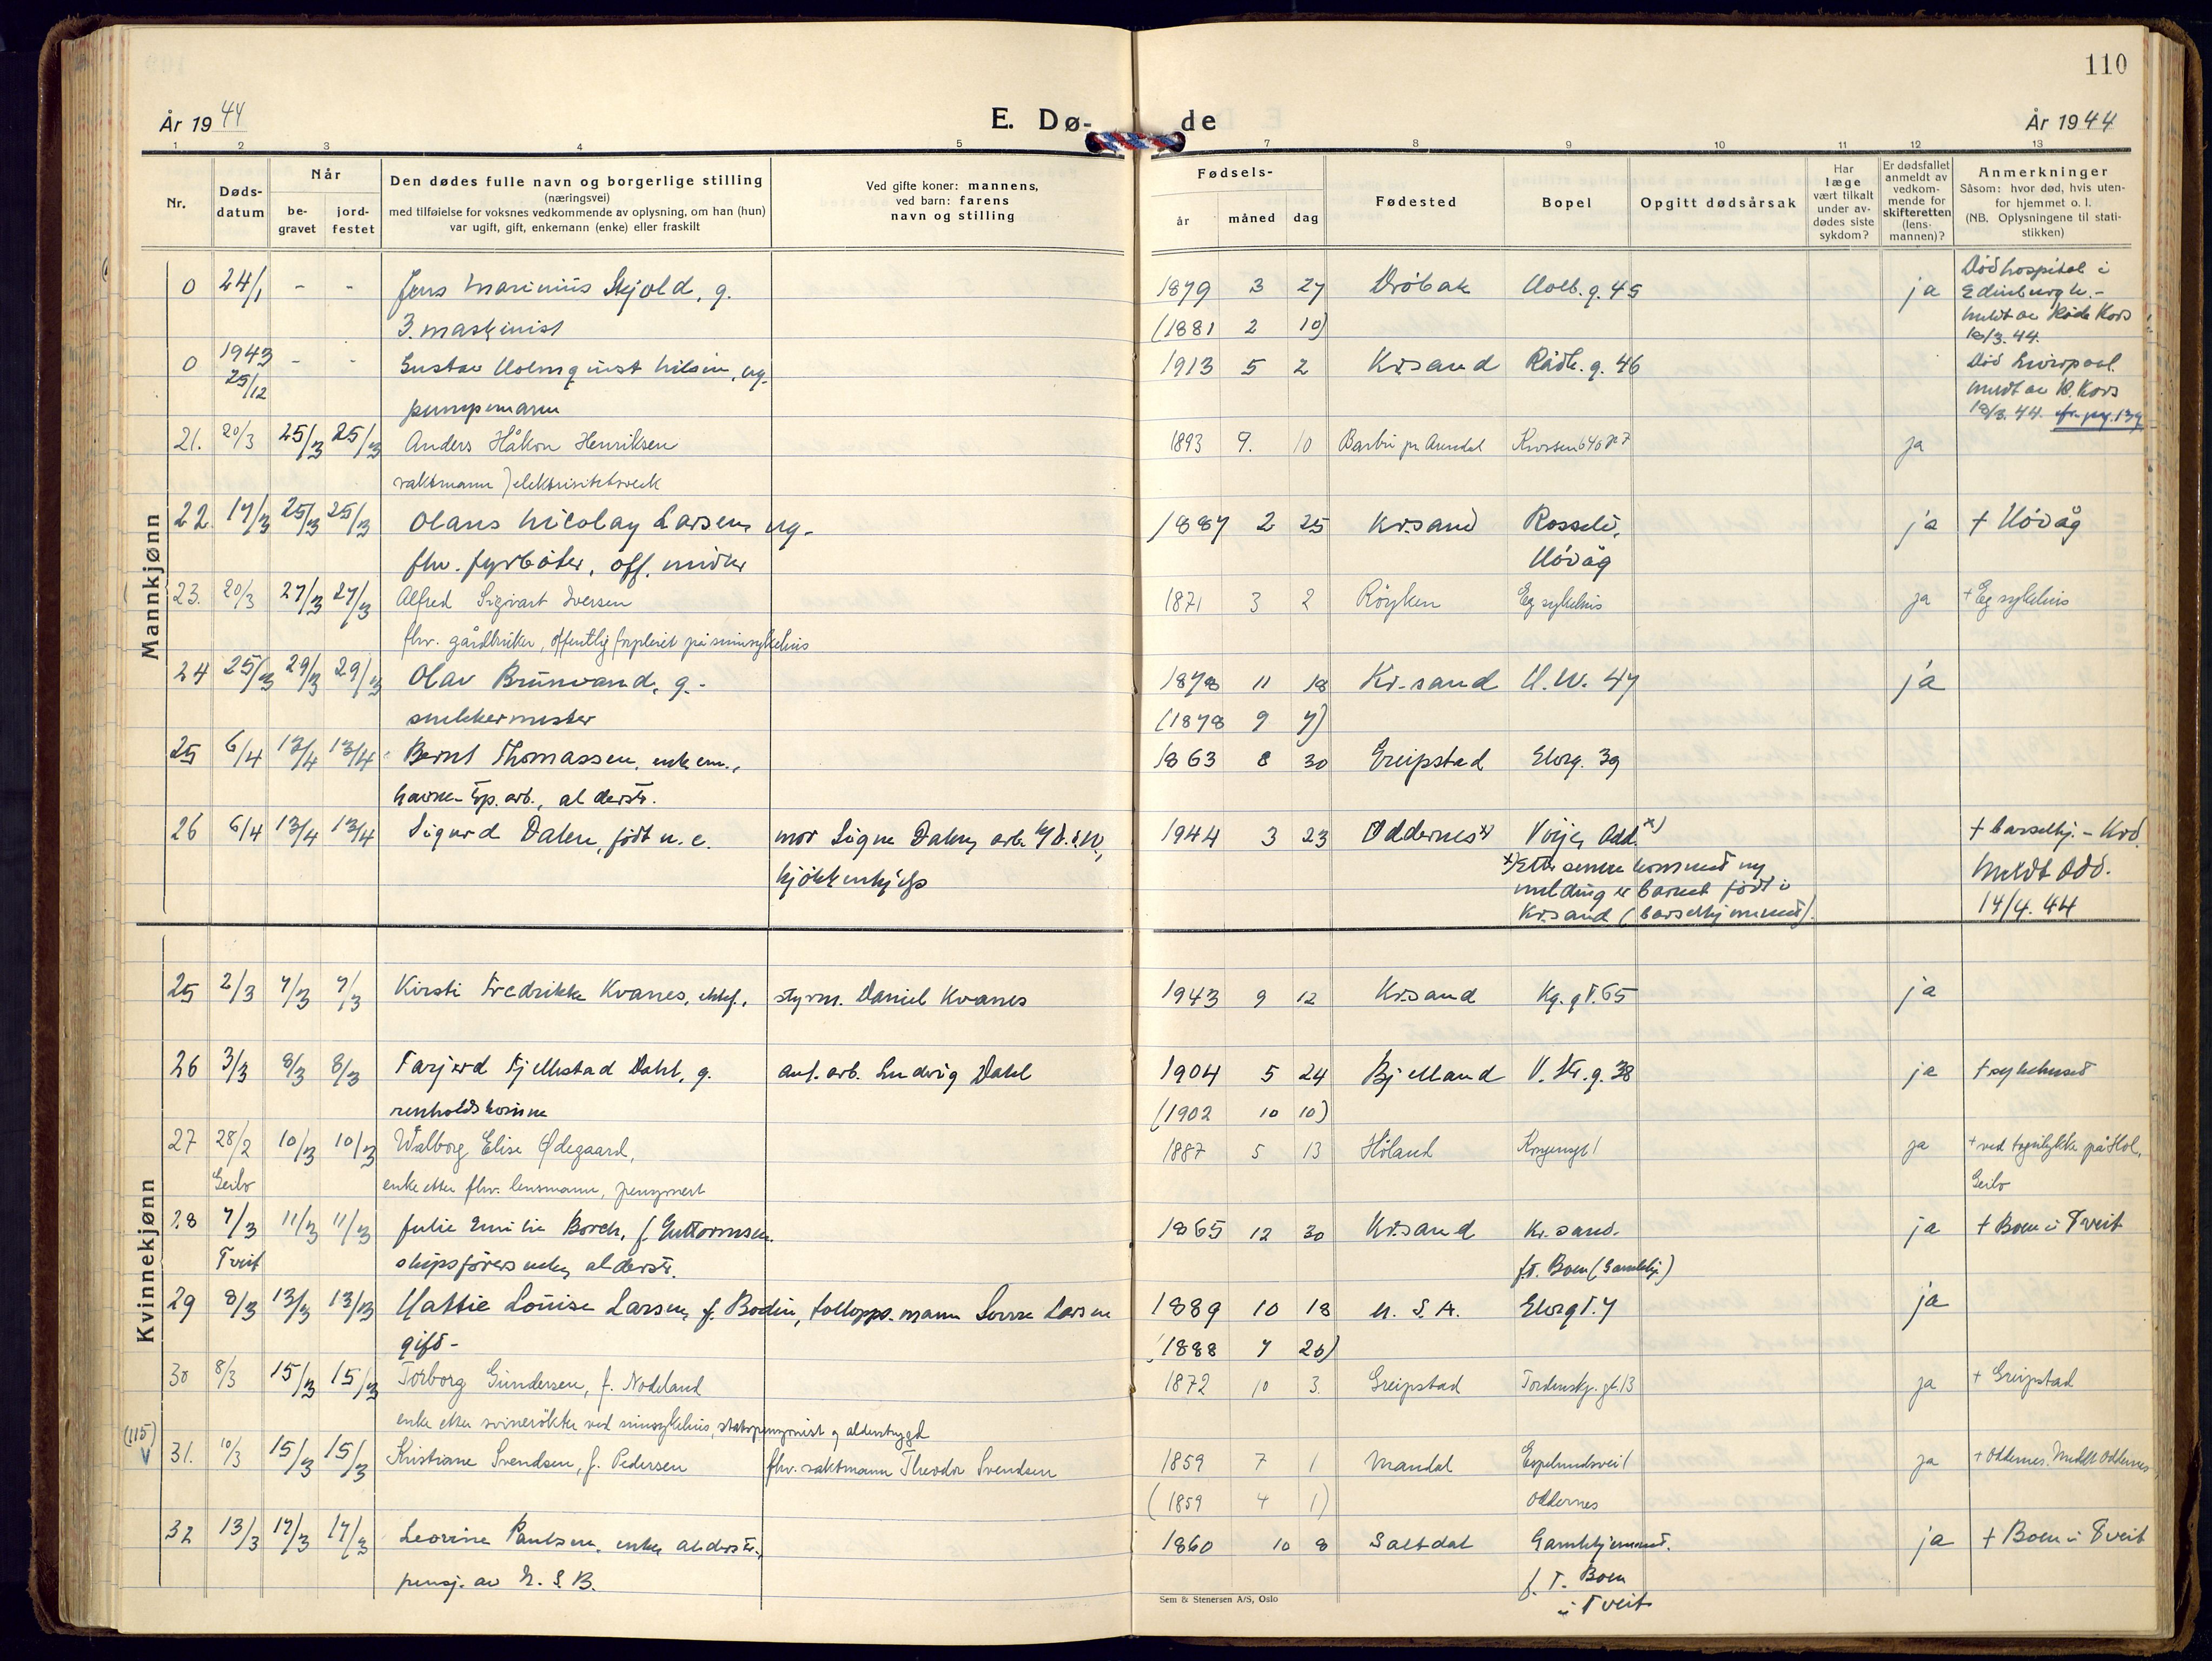 110
År 1944
E. Dø-
de
År 1944
1 2 3 4 5 7 8 9 10 11 12 13
Nr.
Døds-
datum
Når
be-
gravet
jord-
festet
Den dødes fulle navn og borgerlige stilling
(næringsvei)
med tilføielse for voksnes vedkommende av oplysning, om han (hun)
var ugift, gift, enkemann (enke) eller fraskilt
Ved gifte koner: mannens,
ved barn: farens
navn og stilling
Fødsels-
år måned dag
Fødested
Bopel
Opgitt dødsårsak
Har
læge
vært tilkalt
under av-
dødes siste
sykdom?
Er dødsfallet
anmeldt av
vedkom-
mende for
skifteretten
(lens-
mannen)?
Anmerkninger
Såsom: hvor død, hvis uten-
for hjemmet o. l.
(NB. Oplysningene til stati-
stikken)
Mannkjønn
0 24/1 - - Jens Marinius Skjold, g. 1879 3 27 Drøbak Holb.g. 45 ja Død hospital i
Edinburgh.-
3. maskinist (1881 2 10) meldt av Røde Kors
18/3. 44.
0 1943 - - Gustav Holmquist Nilsen, ug. 1913 5 2 Kr.sand Rådh.g. 46 Død Liverpool.
25/12 meldt av R. Kors
pumpemann 18/3. 44. cfr. pag. 139
21. 20/3 25/3 25/3 Anders Håkon Henriksen 1893 9. 10 Barbu pr Arendal Krossen 646 ja
vaktmann / elektrisitetsverk
22. 17/3 25/3 25/3 Olaus Nicolay Larsen, ug- 1887 2 25 Kr.sand Rosseli, ja † Høvåg
fhv. fyrbøter, off. midler Høvåg
23. 20/3 27/3 27/3 Alfred Sigvart Iversen 1871 3 2 Røyken Eg sykehus ja † Eg sykehus
fhv. gårdbruker, offentlig forpleiet på sinnsykehus
24 25/3 29/3 29/3 Olav Brunvand, g.- 1878 11 18 Kr.sand H.W. 47 ja
snekkermester (1878 9 7)
25 6/4 13/4 13/4 Bernt Thomassen, enkem., 1863 8 30 Greipstad Elveg. 39
havne- arb., alderstr.
26 6/4 13/4 13/4 Sigurd Dalen, født u. e. mor Signe Dalen, arb. 1944 3 23 Oddernes x) Voie, Odd. x) † barselhj. - Krs.
kjøkkenhjelp x) Etter senere kommet ny Meldt Odd.
melding er barnet født i
Kr.sand (barselhjemmet). 14/4. 44
Kvinnekjønn
25 2/3 7/3 7/3 Kirsti Fredrikke Kvarres, ektef., styrm. Daniel Kvarres 1943 9 12 Kr.sand Kg. gt. 65 ja
26 3/3 8/3 8/3 Tarjerd Fjellestad Dahl, g. anl. arb. Ludvig Dahl 1904 5 24 Bjelland V. Str.g. 38 ja † sykehuset
renholdskvinne (1902 10 10)
27 28/2 10/3 10/3 Walborg Elise Ødegaard, 1887 5 13 Høland Kongensgt 1 ja † ved togulykke på Hol,
Geilo enke etter fhv. lensmann, pensjonert Geilo
28 7/3 11/3 11/3 Julie Emilie Borch, f. Guttormsen. 1865 12 30 Kr.sand Kr. sand. ja † Boen i Tveit
Tveit skipsførers enke, alderstr. f.t. Boen (Gamlehj.)
29 8/3 13/3 13/3 Hattie Louise Larsen, f. Bodin, tollopps.mann Sverre Larsen 1889 10 18 U. S. A. Elvegt. 7 ja
gift- (1888 7 26)
30 8/3 15/3 15/3 Torborg Gundersen, f. Nodeland 1872 10 3. Greipstad Tordenskj. gt. 13 ja † Greipstad
enke etter svinerøkter ved sinnsykehus, statspensjonist og alderstrygd
(115)
V 31. 10/3 15/3 15/3 Kristiane Svendsen, f. Pedersen fhv. vaktmann Theodor Svendsen 1859 7 1 Mandal Espelundsvei 1 ja † Oddernes. Meldt Oddernes
(1859 4 1) Oddernes
32 13/3 17/3 17/3 Leorine Paulsen, enke, alderstr., 1860 10 8 Saltdal Gamlehjemmet. ja † Boen i Tveit
pensj. av N. S. B. f. T. Boen
i Tveit
Sem & Stenersen A/S, Oslo